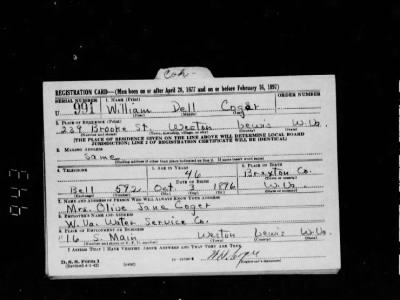 Cog-
REGISTRATION CARD—(Men born on or after April 28, 1877 and on or before February 16, 1897)
SERIAL NUMBER 1. NAME (Print) ORDER NUMBER
U 991 William Dell Coger
2. PLACE OF RESIDENCE (Print)
229 Brooke St. Weston Lewis W.Va.
(THE PLACE OF RESIDENCE GIVEN ON THE LINE ABOVE WILL DETERMINE LOCAL BOARD
JURISDICTION; LINE 2 OF REGISTRATION CERTIFICATE WILL BE IDENTICAL)
3. MAILING ADDRESS
Same
[Mailing address if other than place indicated on line 2. If same insert word same]
4. TELEPHONE 5. AGE IN YEARS 6. PLACE OF BIRTH
46 Braxton Co.
DATE OF BIRTH
Bell 572 Oct 3 1896 W.Va.
7. NAME AND ADDRESS OF PERSON WHO WILL ALWAYS KNOW YOUR ADDRESS
Mrs. Olive Jane Coger
8. EMPLOYER'S NAME AND ADDRESS
W. Va. Water Service Co.
9. PLACE OF EMPLOYMENT OR BUSINESS
16 S. Main Weston Lewis W.Va.
I AFFIRM THAT I HAVE VERIFIED ABOVE ANSWERS AND THAT THEY ARE TRUE.
D. S. S. Form 1
(Revised 4-1-42)
943